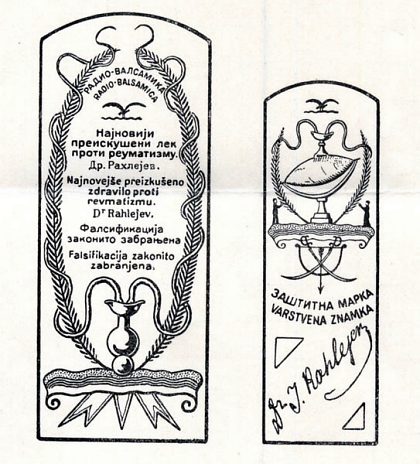 РАДИО-ВАЛСАМИКА
RADIO-BALSAMICA
Најновији
преискушени лек
проти реуматизму.
Др. Рахлејев.
Najnovejše preizkušeno
zdravilo proti
revmatizmu.
Dr Rahlejev.
Фалсификација
законито забрањена
Falsifikacija zakonito
zabranjena.
ЗАШТИТНА МАРКА
VARSTVENA ZNAMKA
Dr. I. Rahlejev